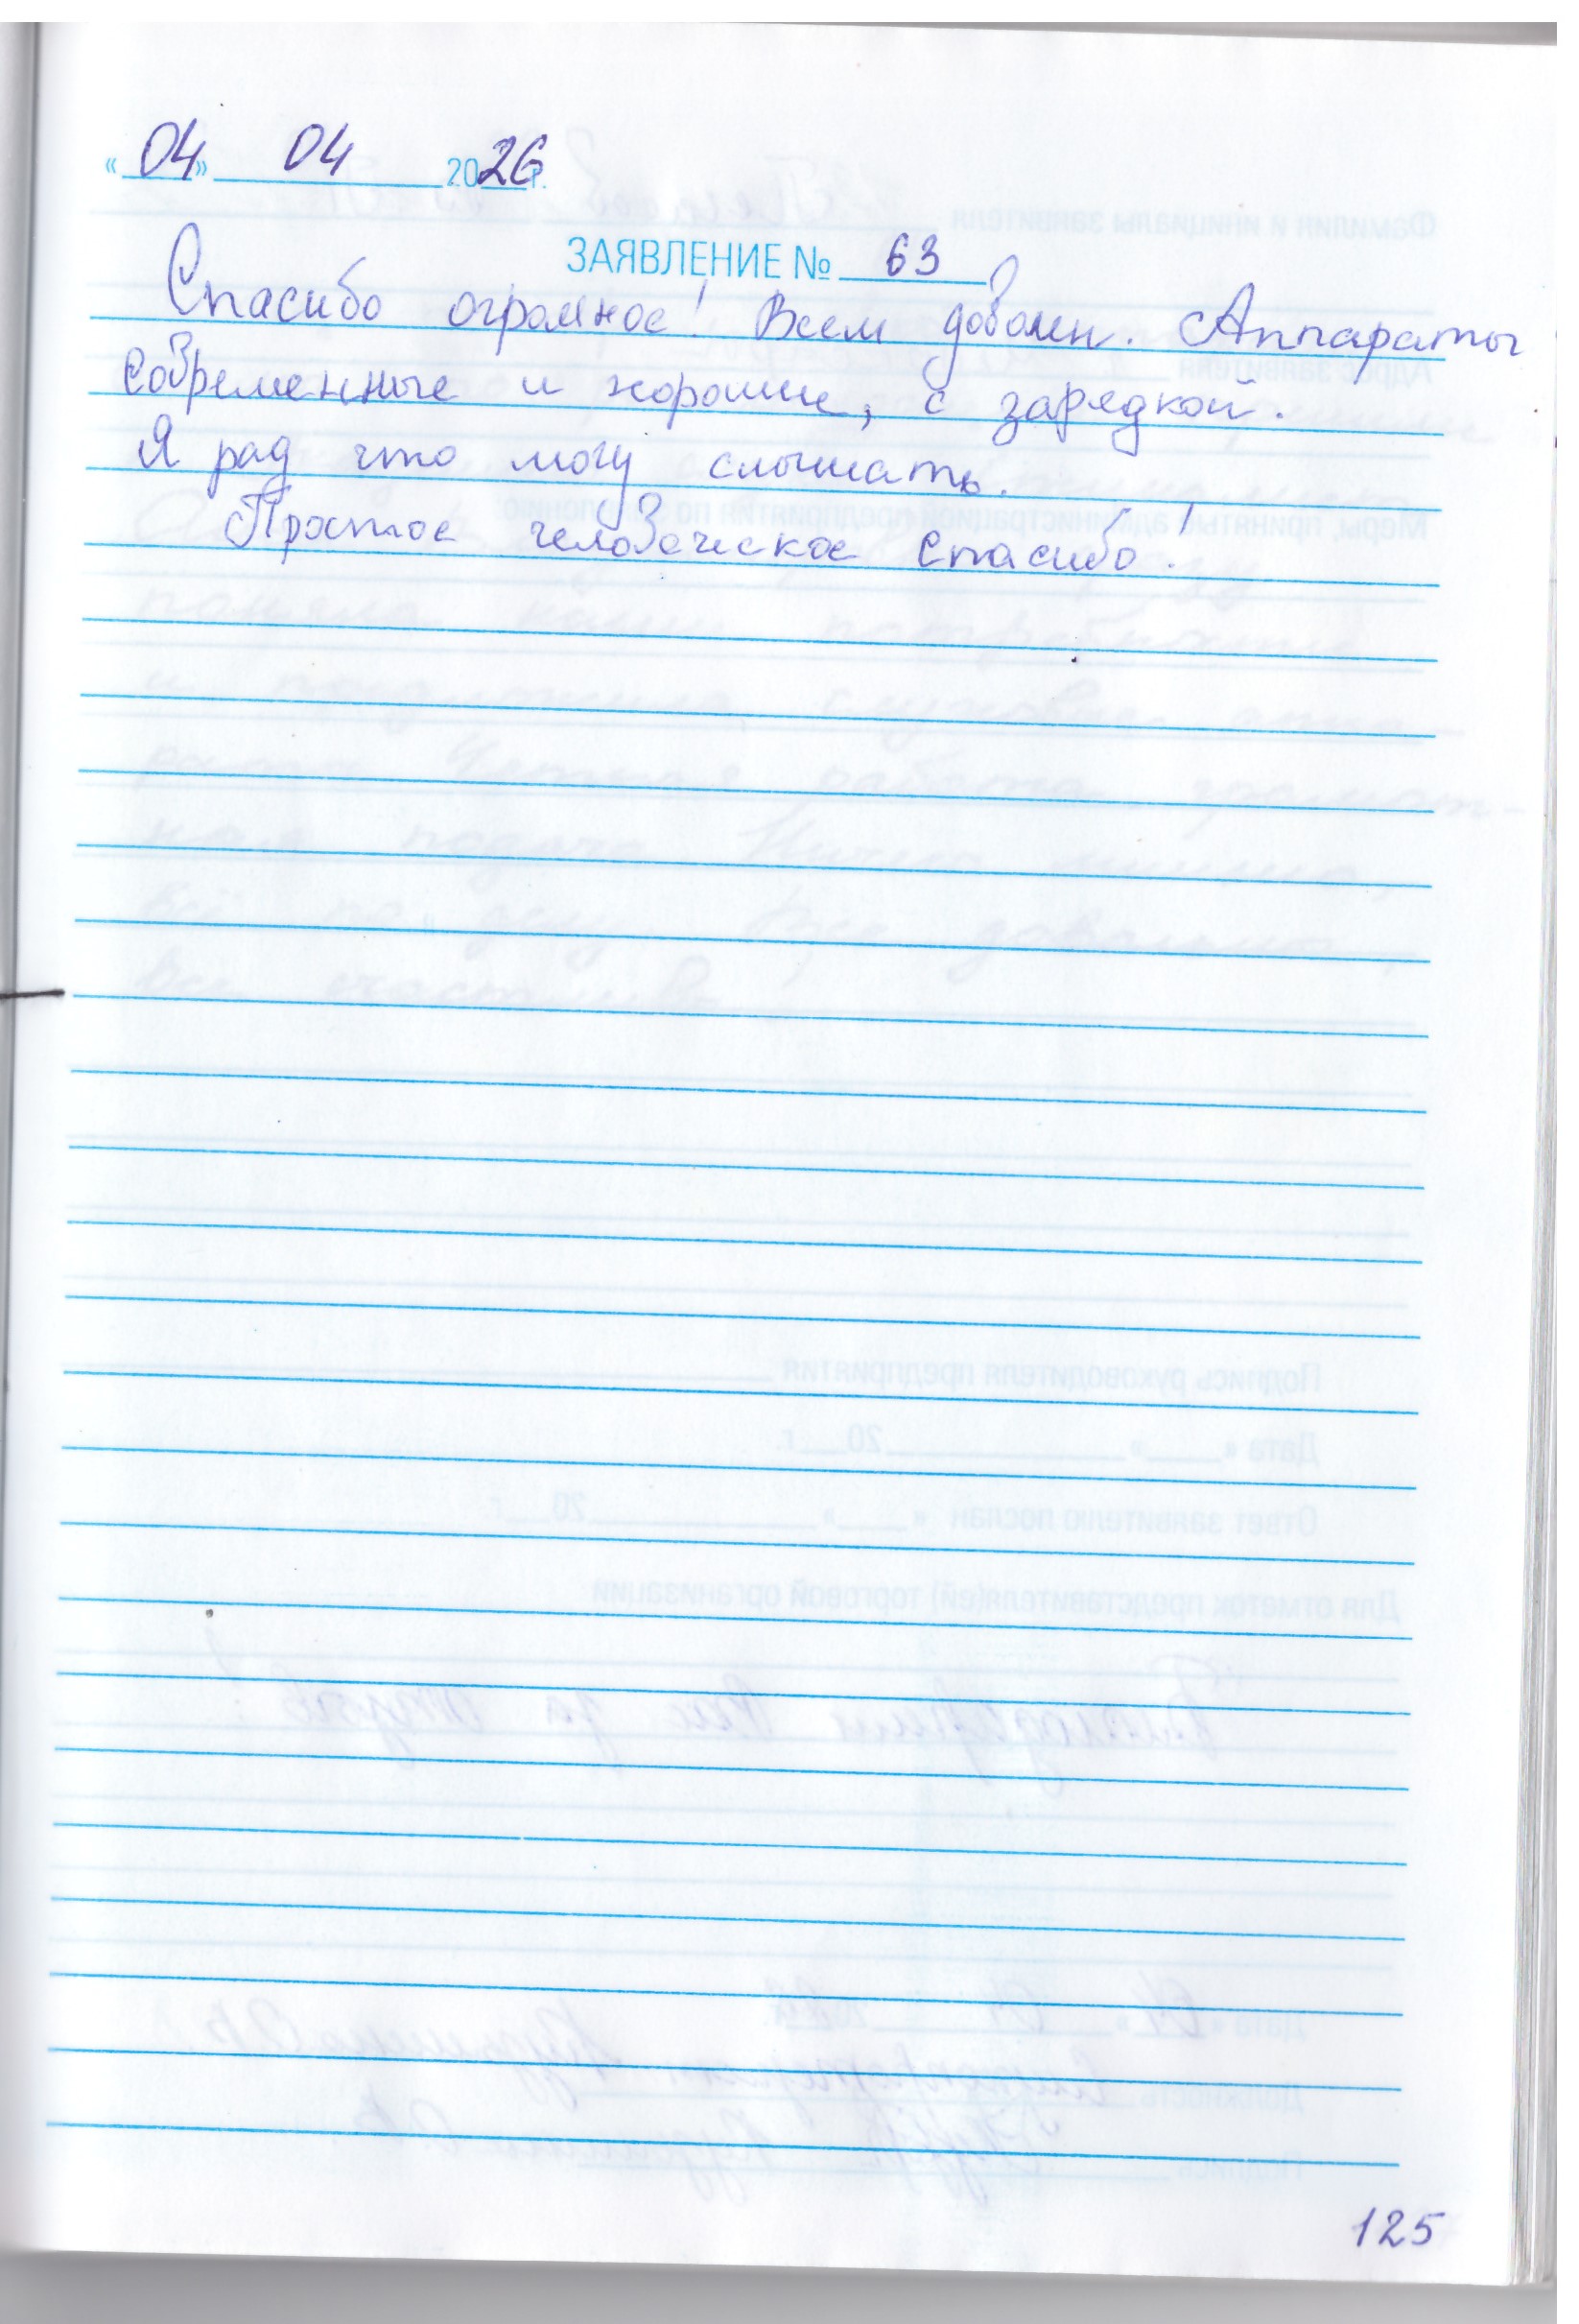 «04» 04 2026 г.
ЗАЯВЛЕНИЕ № 63
Спасибо огромное! Всем доволен. Аппараты
современные и хорошие, с зарядкой.
Я рад что могу слышать.
Простое человеческое спасибо!
125